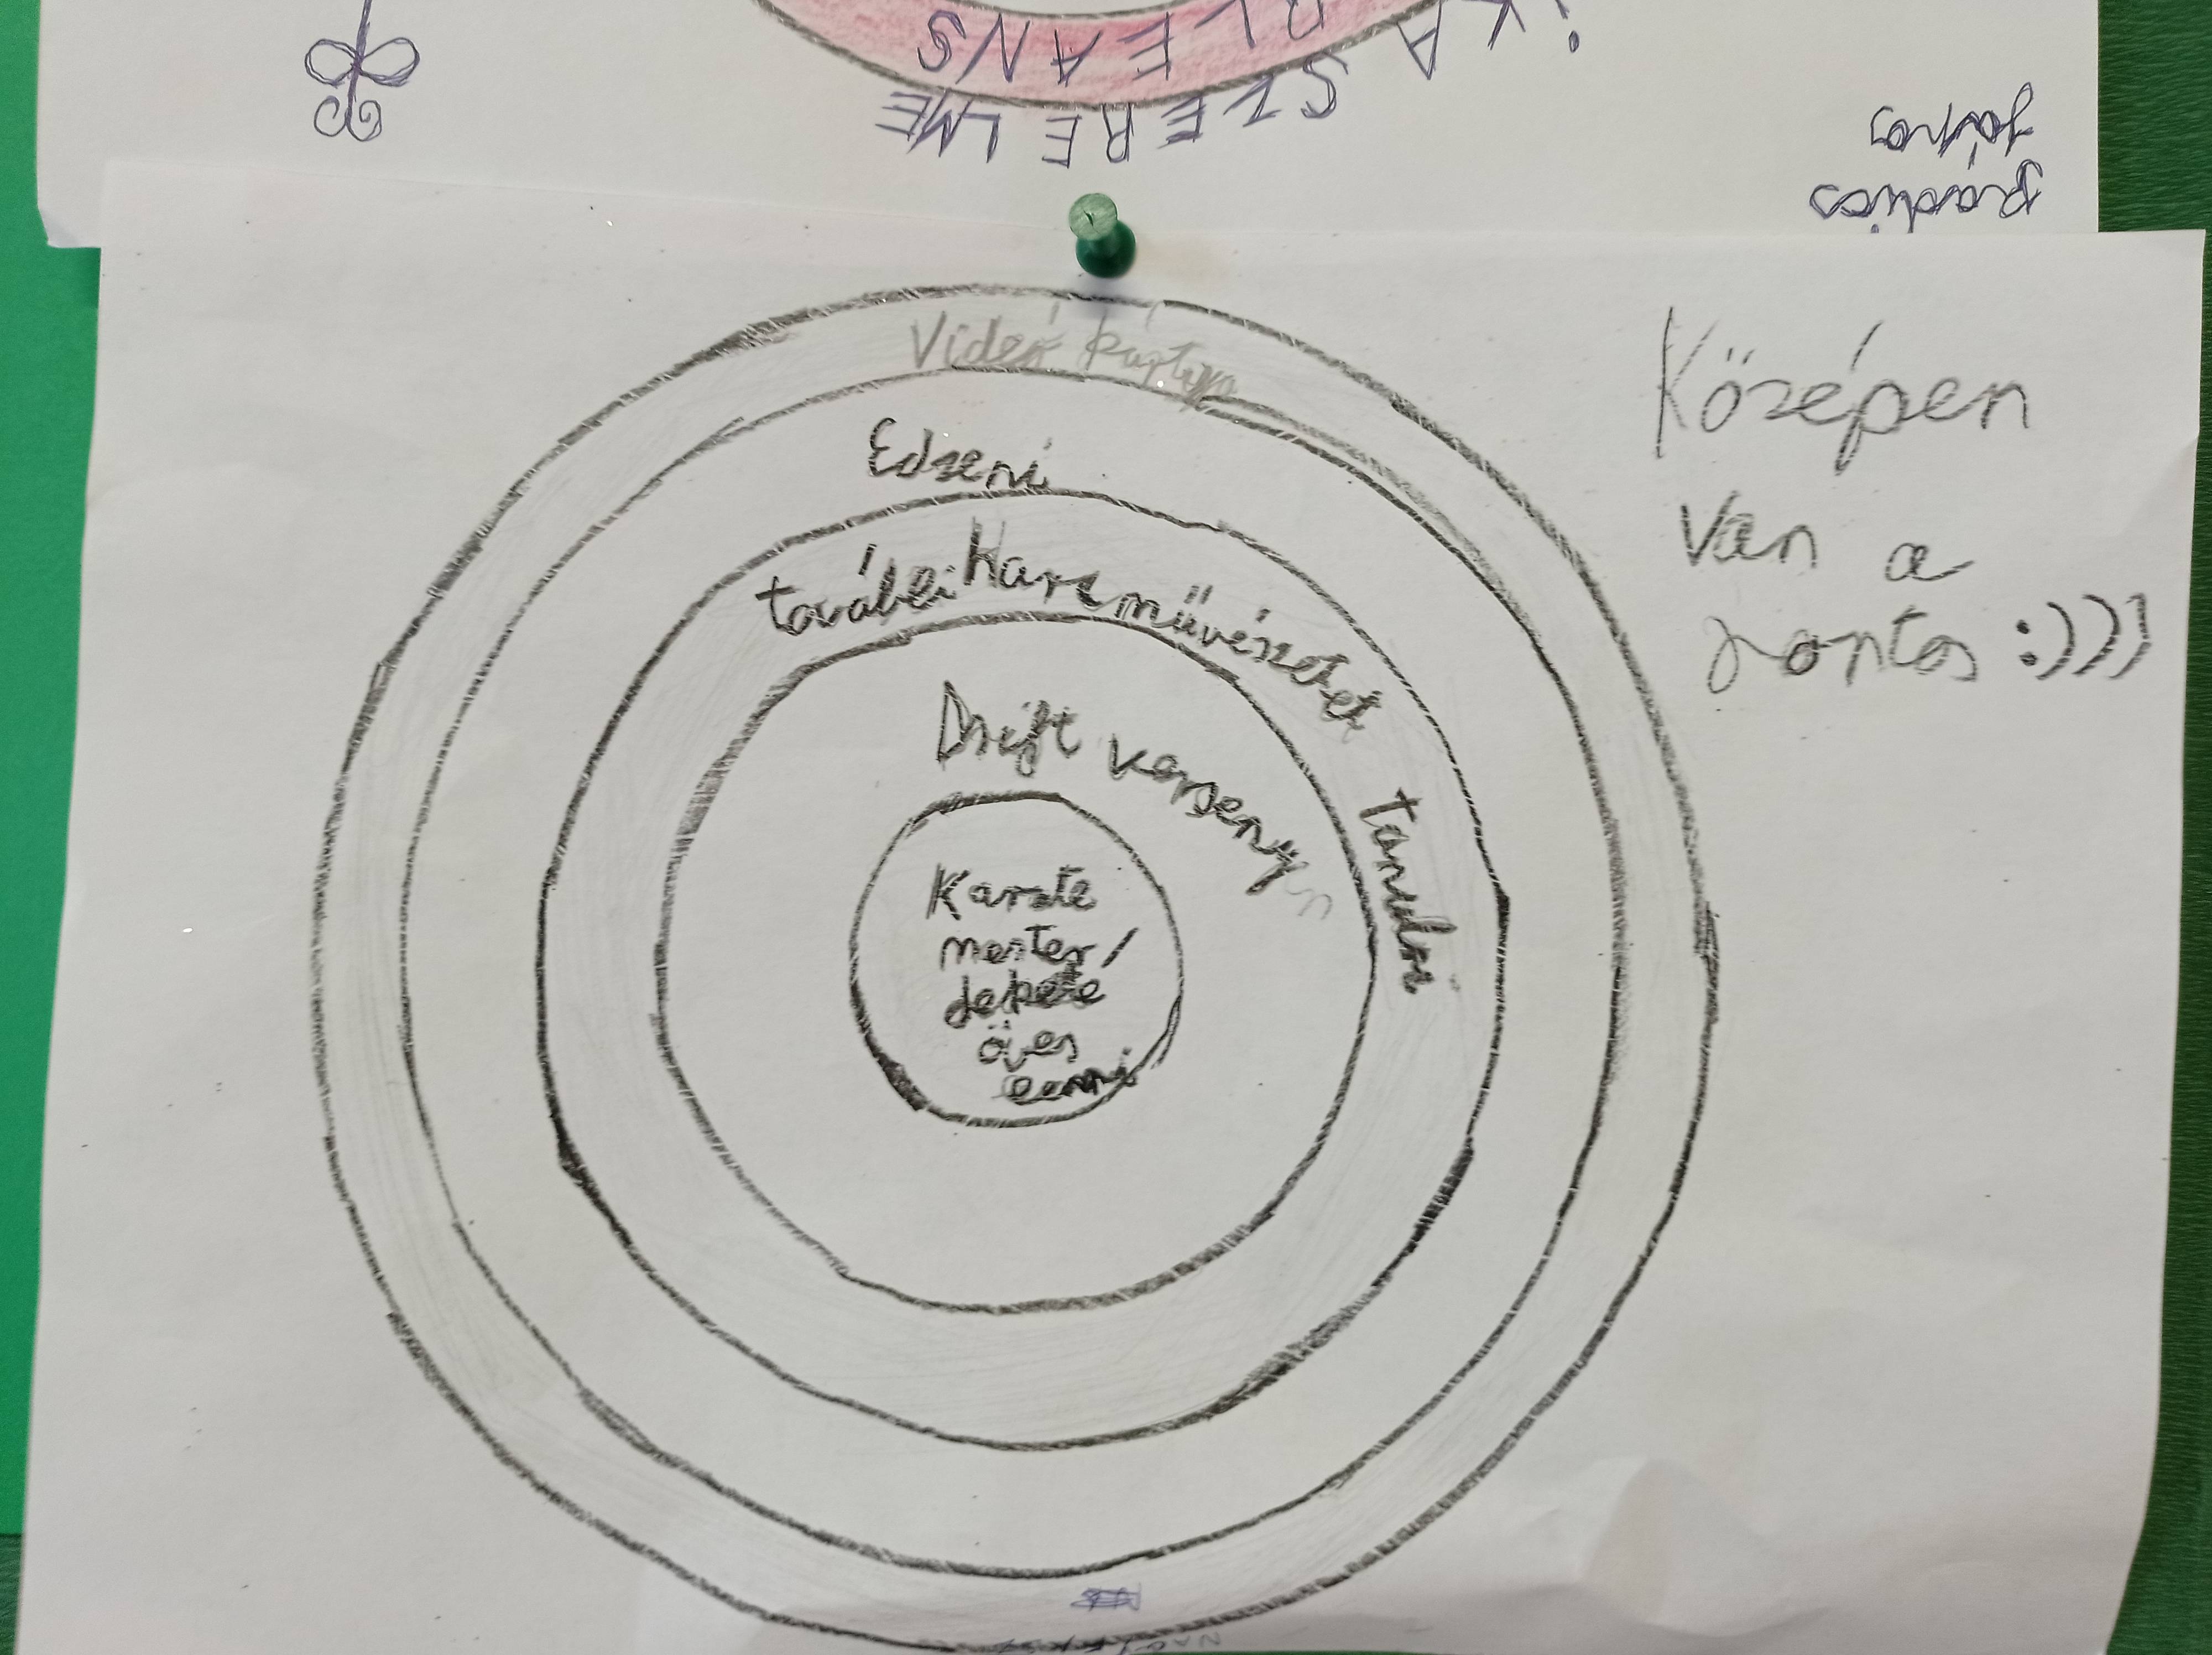 iKA SZERELME
RLEANS
rádiós
János
Videó kártya
Edzeni
további Harcművészetet tanulni
Drift versenyzn
Karate
mester/
fekete
öves
lenni
Középen
van a
fontos :)))